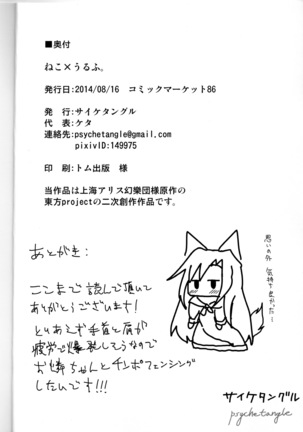 ■奥付
ねこ×うるふ。
発行日:2014/08/16 コミックマーケット86
発 行:サイケタングル
代 表:ケタ
連絡先:psychetangle@gmail.com
pixivID:149975
印 刷:トム出版 様
当作品は上海アリス幻樂団様原作の
東方projectの二次創作作品です。
あとがき:
ここまで読んで頂いて
ありがとうございます!
とりあえず手首と肩が
疲労で爆発してそうなので
お燐ちゃんとチンポフェンシング
したいです!!!
思いの外
気持ち良かった…
サイケタングル
psychetangle